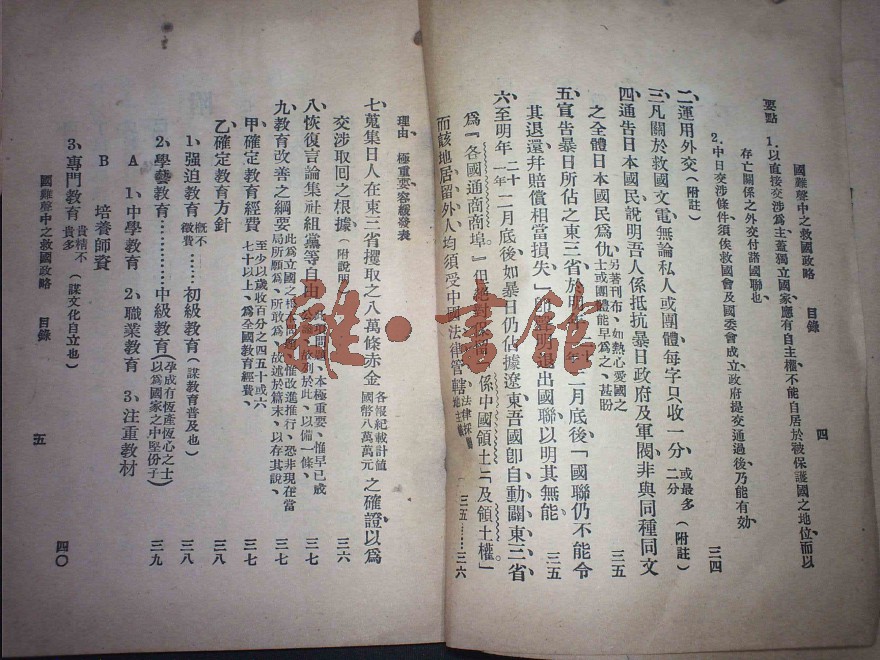 國難聲中之救國政略 目錄 四
要點 1.以直接交涉爲主蓋獨立國家應有自主權不能自居於被保護國之地位而以
存亡關係之外交付諸國聯也
2.中日交涉條件須俟救國會及國委會成立政府提交通過後乃能有効 三四
二、運用外交(附註)
三、凡關於救國文電無論私人或團體每字只收一分、或最多二分(附註)
四、通告日本國民說明吾人係抵抗暴日政府及軍閥非與同種同文
之全體日本國民爲仇 另著刊布、如熱心愛國之士或團體能早爲之、甚盼 三五
五、宣告暴日所佔之東三省於明 年 二月底後「國聯仍不能令
其退還并賠償相當損失」 聲明退出國聯以明其無能 三五
六、至明年二十一年二月底後如暴日仍佔據遼東吾國卽自動闢東三省
爲「各國通商商埠。」但絕對 係中國領土「及領土權」
而該地居留外人均須受中國法律管轄 三五……三六
理由 極重要容緩發表
七、蒐集日人在東三省攫取之八萬條赤金 各報紀載計值國幣八萬萬元 之確證以爲
交涉取回之根據(附說明 三六
八、恢復言論集社組黨等自由 本極重要、惟早已成 列於此、以備一條、 三七
九、教育改善之綱要 此爲立國之 惟改進推行、恐非現在當局所願爲、所敢爲、故述於篇末、以存其說、 三七
甲、確定教育經費 至少以歲收百分之四五十或六七十以上、爲全國教育經費、 三七
乙、確定教育方針 三八
1、强迫教育 概不徵費……初級教育(謀教育普及也) 三八
2、學藝教育…………中級教育(孕成有恆產恆心之士以爲國家之中堅份子) 三九
A 1、中學教育 2、職業教育 3、注重教材
B 培養師資
3、專門教育 貴精不貴多(謀文化自立也) 四〇
國難聲中之救國政略 目錄 五
雅·書館